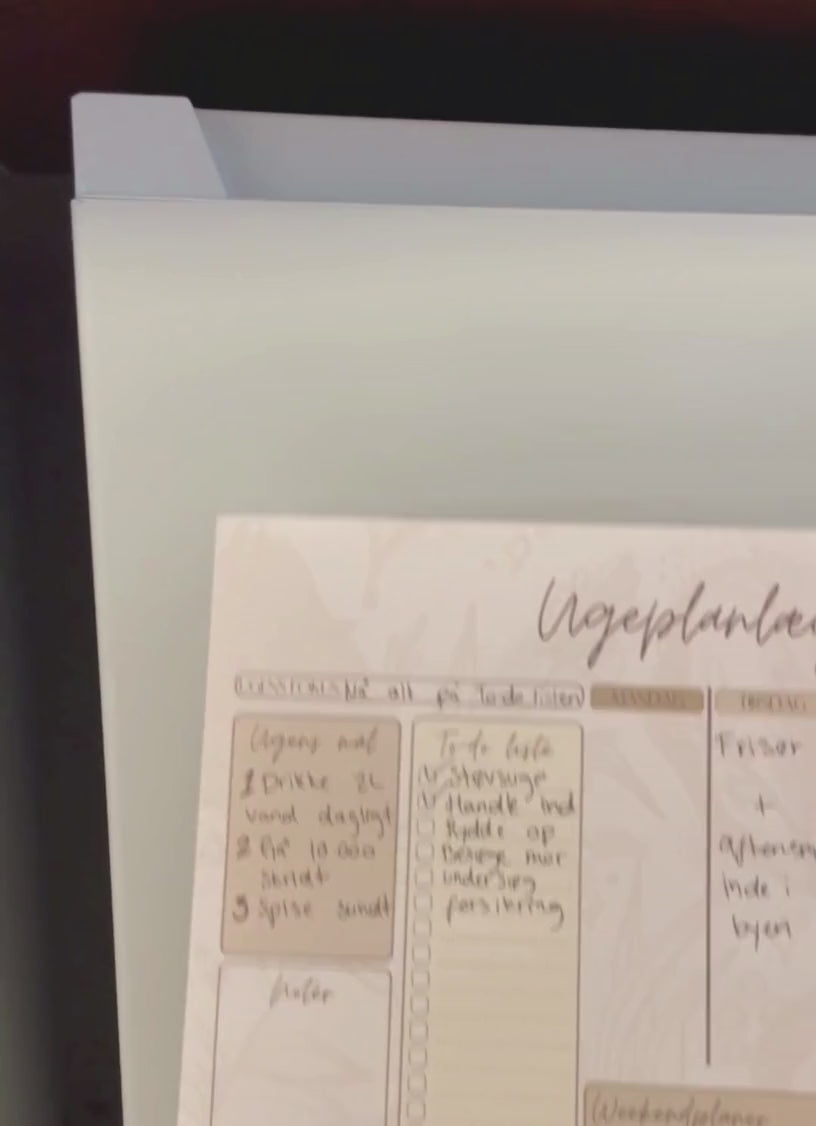 Ugeplanlæg
Nå alt på To do listen
MANDAG
TIRSDAG
Ugens mål
1 Drikke 2L
vand dagligt
2 Gå 10 000
skridt
3 Spise sundt
Noter
To do liste
Støvsuge
Handle ind
Rydde op
Besøge mor
undersøg
forsikring
Frisør
+
inde i
byen
Weekendplaner